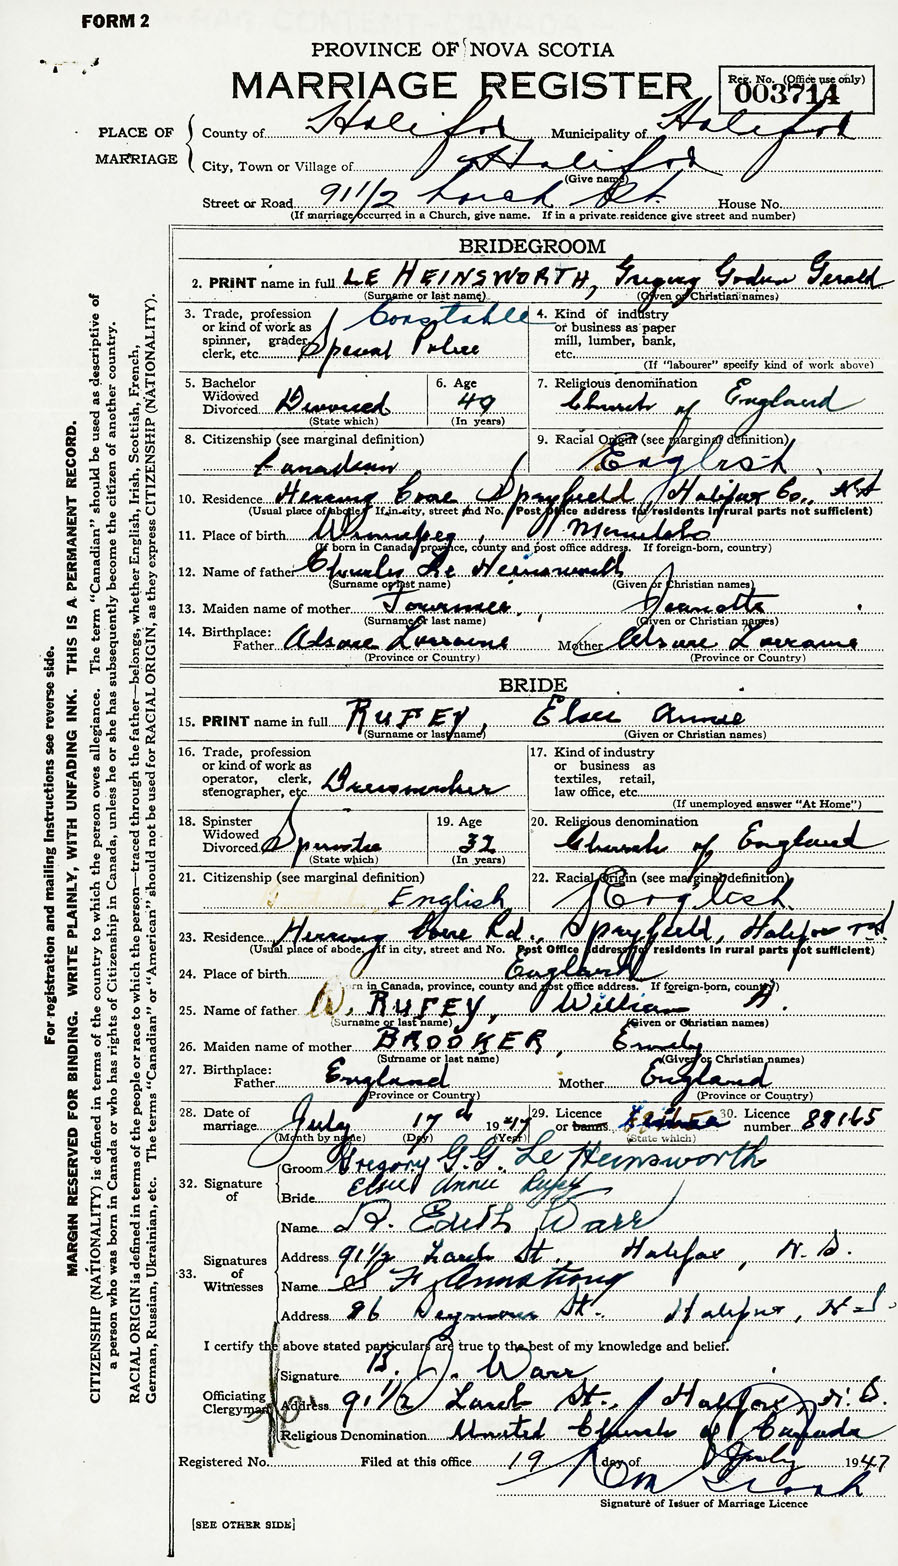 FORM 2
PROVINCE OF NOVA SCOTIA
MARRIAGE REGISTER
Reg. No. (Office use only)
003714
PLACE OF MARRIAGE
County of Halifax Municipality of Halifax
City, Town or Village of Halifax
(Give name)
Street or Road 91 1/2 Larch St. House No.
(If marriage occurred in a Church, give name. If in a private residence give street and number)
BRIDEGROOM
2. PRINT name in full LE HEINSWORTH, Gregory Godwin Gerald
(Surname or last name) (Given or Christian names)
3. Trade, profession or kind of work as spinner, grader, clerk, etc. Constable Special Police
4. Kind of industry or business as paper mill, lumber, bank, etc.
(If "labourer" specify kind of work above)
5. Bachelor Widowed Divorced Divorced
(State which)
6. Age 49
(In years)
7. Religious denomination Church of England
8. Citizenship (see marginal definition) Canadian
9. Racial Origin (see marginal definition) English
10. Residence Herring Cove Spryfield, Halifax Co., NS
(Usual place of abode. If in city, street and No. Post Office address for residents in rural parts not sufficient)
11. Place of birth Winnipeg, Manitoba
(If born in Canada, province, county and post office address. If foreign-born, country)
12. Name of father Charles Le Heinsworth
(Surname or last name) (Given or Christian names)
13. Maiden name of mother , Jeanotte
(Surname or last name) (Given or Christian names)
14. Birthplace: Father Alsace Lorraine Mother Alsace Lorraine
(Province or Country) (Province or Country)
BRIDE
15. PRINT name in full RUFEY, Elsie Annie
(Surname or last name) (Given or Christian names)
16. Trade, profession or kind of work as operator, clerk, stenographer, etc. Dressmaker
17. Kind of industry or business as textiles, retail, law office, etc.
(If unemployed answer "At Home")
18. Spinster Widowed Divorced Spinster
(State which)
19. Age 32
(In years)
20. Religious denomination Church of England
21. Citizenship (see marginal definition) English
22. Racial Origin (see marginal definition) English
23. Residence Herring Cove Rd., Spryfield, Halifax
(Usual place of abode. If in city, street and No. Post Office address for residents in rural parts not sufficient)
24. Place of birth England
rn in Canada, province, county and post office address. If foreign-born, country)
25. Name of father W. RUFEY, William A.
(Surname or last name) (Given or Christian names)
26. Maiden name of mother BROOKER, Emily
(Surname or last name) (Given or Christian names)
27. Birthplace: Father England Mother England
(Province or Country) (Province or Country)
28. Date of marriage July 17th 1947
(Month by name) (Day) (Year)
29. Licence or banns
(State which)
30. Licence number 88165
32. Signature of
Groom Gregory G.G. Le Heinsworth
Bride Elsie Annie Rufey
33. Signatures of Witnesses
Name R. Edith Warr
Address 91 1/2 Larch St. Halifax, N.S.
Name S F Armstrong
Address 86 Seymour St. Halifax, N.S.
I certify the above stated particulars are true to the best of my knowledge and belief.
Officiating Clergyman
Signature B. J. Warr
Address 91 1/2 Larch St., Halifax, N.S.
Religious Denomination United Church of Canada
Registered No. Filed at this office 19 day of July 1947
Signature of Issuer of Marriage Licence
[SEE OTHER SIDE]
For registration and mailing instructions see reverse side.
MARGIN RESERVED FOR BINDING. WRITE PLAINLY, WITH UNFADING INK. THIS IS A PERMANENT RECORD.
CITIZENSHIP (NATIONALITY) is defined in terms of the country to which the person owes allegiance. The term "Canadian" should be used as descriptive of
a person who was born in Canada or who has rights of Citizenship in Canada, unless he or she has subsequently become the citizen of another country.
RACIAL ORIGIN is defined in terms of the people or race to which the person—traced through the father—belongs, whether English, Irish, Scottish, French,
German, Russian, Ukrainian, etc. The terms "Canadian" or "American" should not be used for RACIAL ORIGIN, as they express CITIZENSHIP (NATIONALITY).